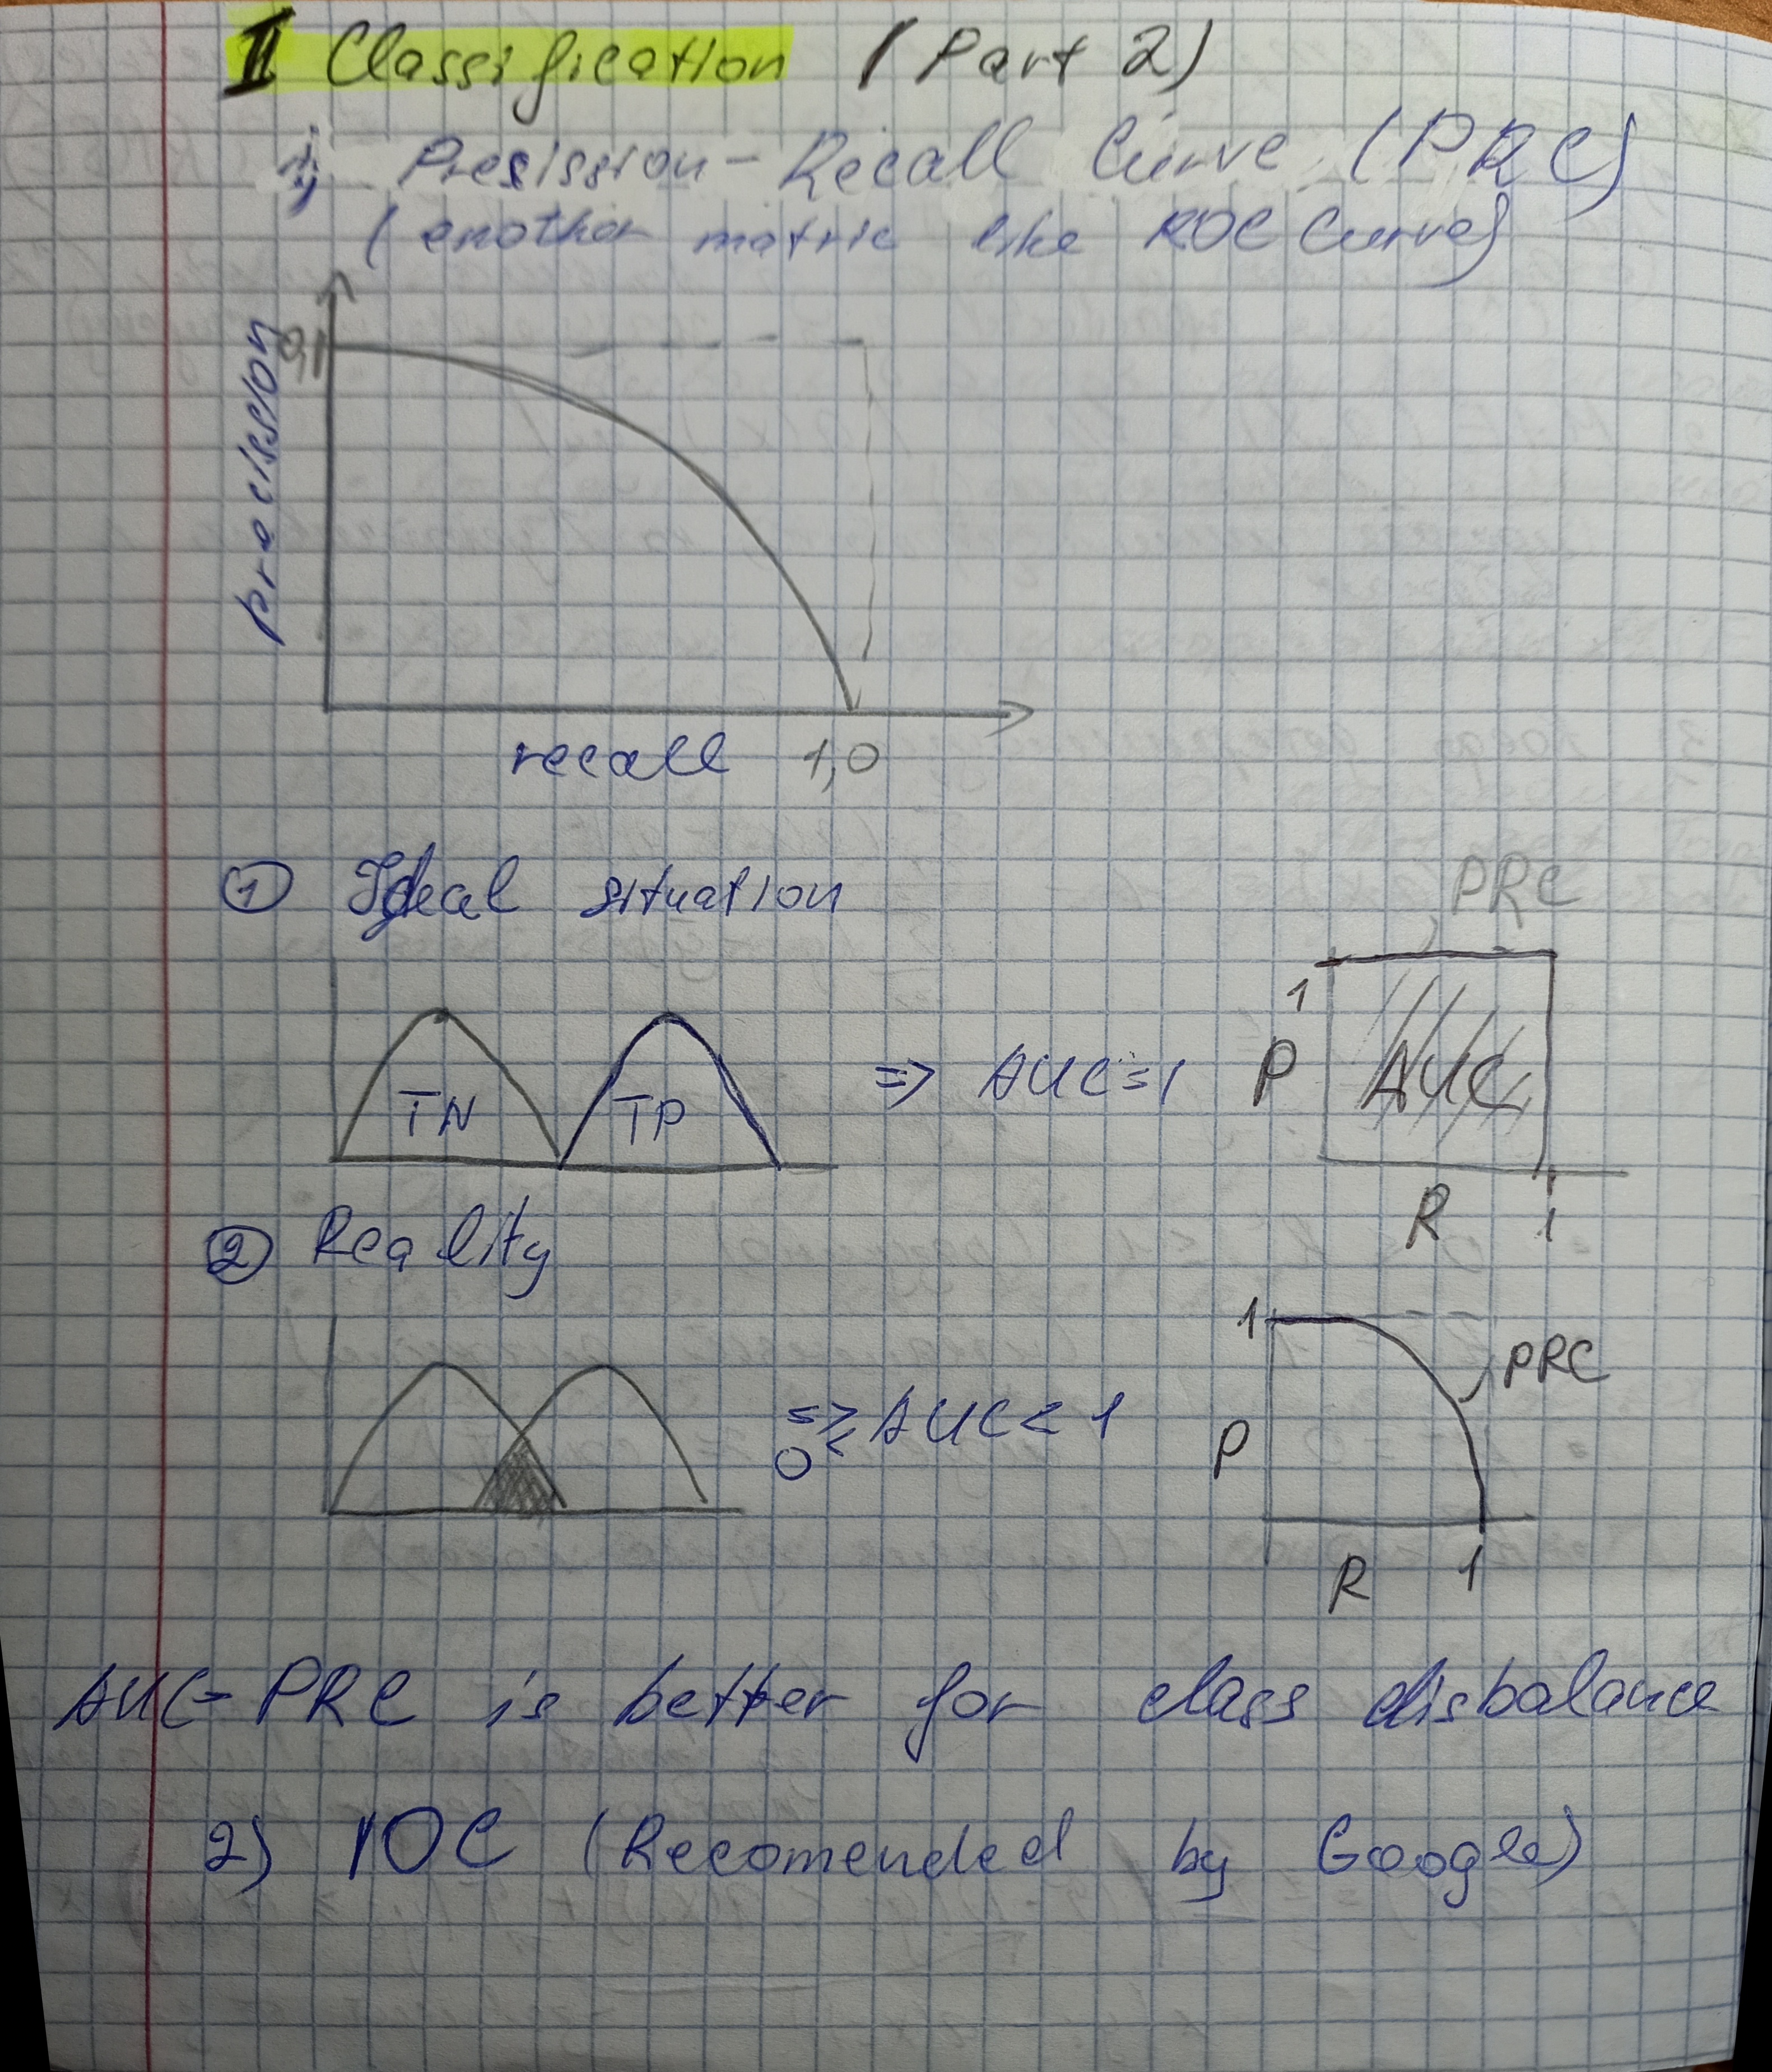 II Classification (Part 2)
Presission-Recall Curve (PRC)
(another metric like ROC Curve)
precission
recall 1,0
① Ideal situation
PRC
1
TN TP => AUC=1 P AUC
R 1
② Reality
1
PRC
=> 0 ≤ AUC < 1 P
R 1
AUC-PRC is better for class disbalance
2) IOC (Recomended by Google)